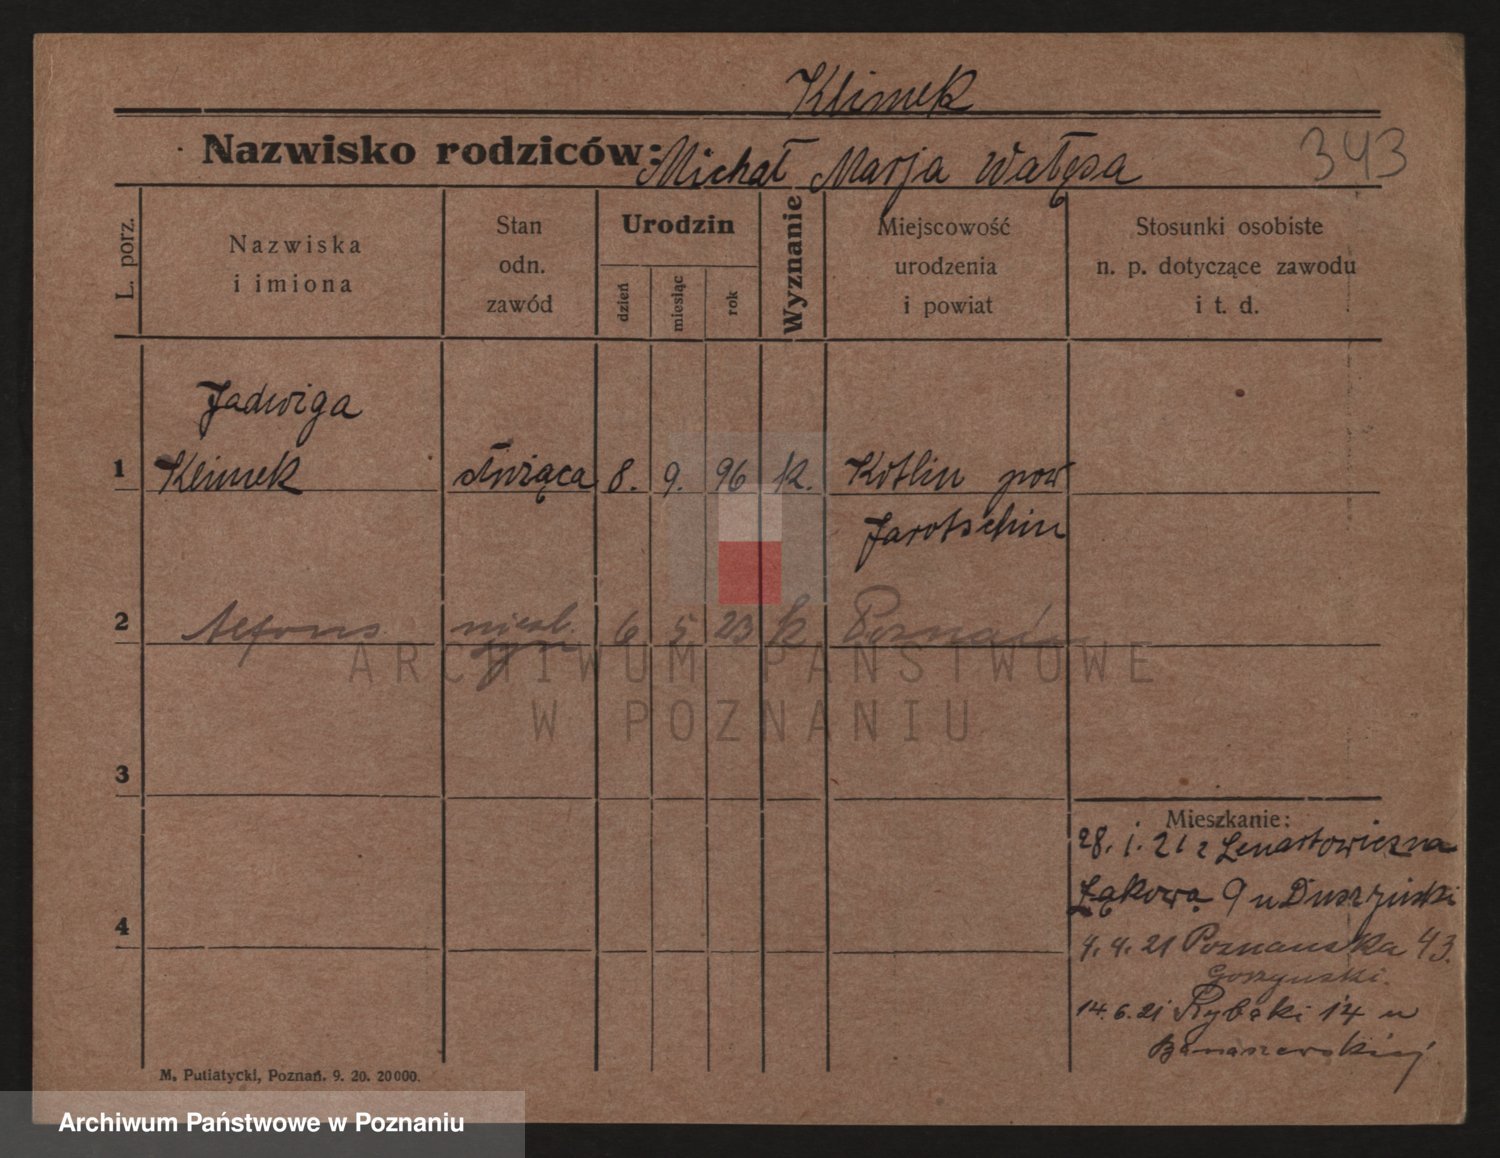 Klimek
Nazwisko rodziców: Michał Marja Wałęsa
343
L. porz.
Nazwiska
i imiona
Stan
odn.
zawód
Urodzin
dzień
miesiąc
rok
Wyznanie
Miejscowość
urodzenia
i powiat
Stosunki osobiste
n. p. dotyczące zawodu
i t. d.
Jadwiga
1 Klimek służąca 8. 9. 96 k. Kotlin pow
Jarotschin
2 Alfons nieśl. 6 5 23 k Poznań
syn
ARCHIWUM PAŃSTWOWE
W POZNANIU
3
Mieszkanie:
28. 1. 21 z Lenartowiczna
Łąkowa 9 u Duszyński
4
4. 4. 21 Poznanska 43.
Gorzynski.
14. 6. 21 Rybaki 14 u
Banaszewskiej
M. Putiatycki, Poznań. 9. 20. 20000.
Archiwum Państwowe w Poznaniu